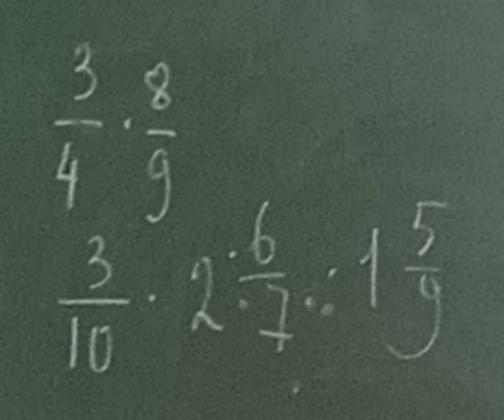 3/4 · 8/9
3/10 · 2 6/7 : 1 5/9